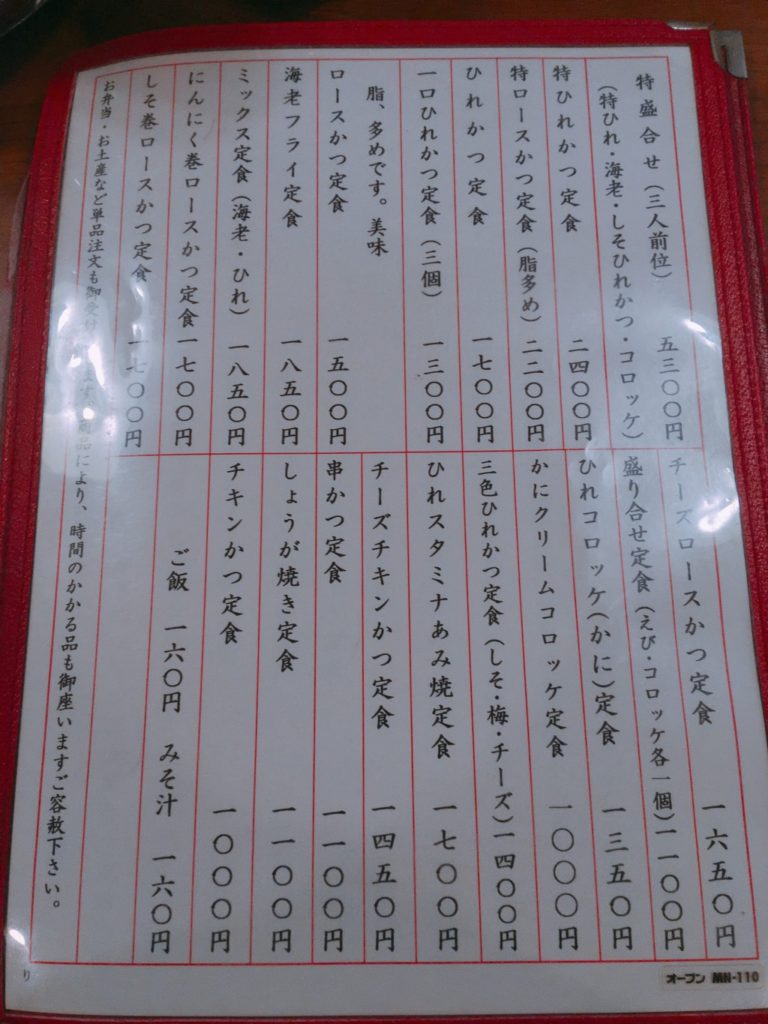 特盛合せ（三人前位） 五三〇〇円
（特ひれ・海老・しそひれかつ・コロッケ）
特ひれかつ定食 二四〇〇円
特ロースかつ定食（脂多め） 二二〇〇円
ひれかつ定食 一七〇〇円
一口ひれかつ定食（三個） 一三〇〇円
脂、多めです。美味
ロースかつ定食 一五〇〇円
海老フライ定食 一八五〇円
ミックス定食（海老・ひれ） 一八五〇円
にんにく巻ロースかつ定食 一七〇〇円
しそ巻ロースかつ定食 一七〇〇円
チーズロースかつ定食 一六五〇円
盛り合せ定食（えび・コロッケ各一個） 一一〇〇円
ひれコロッケ(かに)定食 一三五〇円
かにクリームコロッケ定食 一〇〇〇円
三色ひれかつ定食（しそ・梅・チーズ） 一四〇〇円
ひれスタミナあみ焼定食 一七〇〇円
チーズチキンかつ定食 一四五〇円
串かつ定食 一一〇〇円
しょうが焼き定食 一一〇〇円
チキンかつ定食 一〇〇〇円
ご飯 一六〇円 みそ汁 一六〇円
お弁当・お土産など単品注文も御受け ます 商品により、時間のかかる品も御座いますご容赦下さい。
り
オープン MN-110